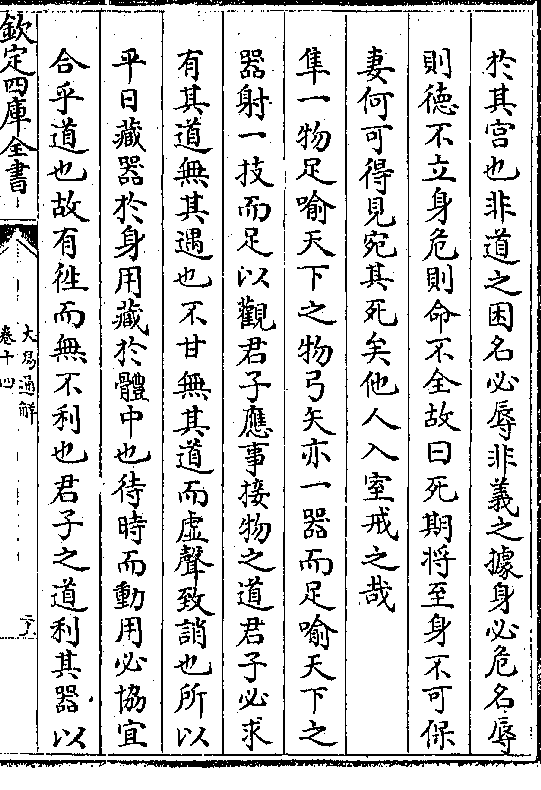 於其宫也非道之困名必辱非義之據身必危名辱
則徳不立身危則命不全故曰死期将至身不可保
妻何可得見宛其死矣他人入室戒之哉
隼一物足喻天下之物弓矢亦一器而足喻天下之
器射一技而足以觀君子應事接物之道君子必求
有其道無其遇也不甘無其道而虚聲致誚也所以
平日藏器於身用藏於體中也待時而動用必協宜
合乎道也故有徃而無不利也君子之道利其器以
欽定四庫全書
大易通解
卷十四